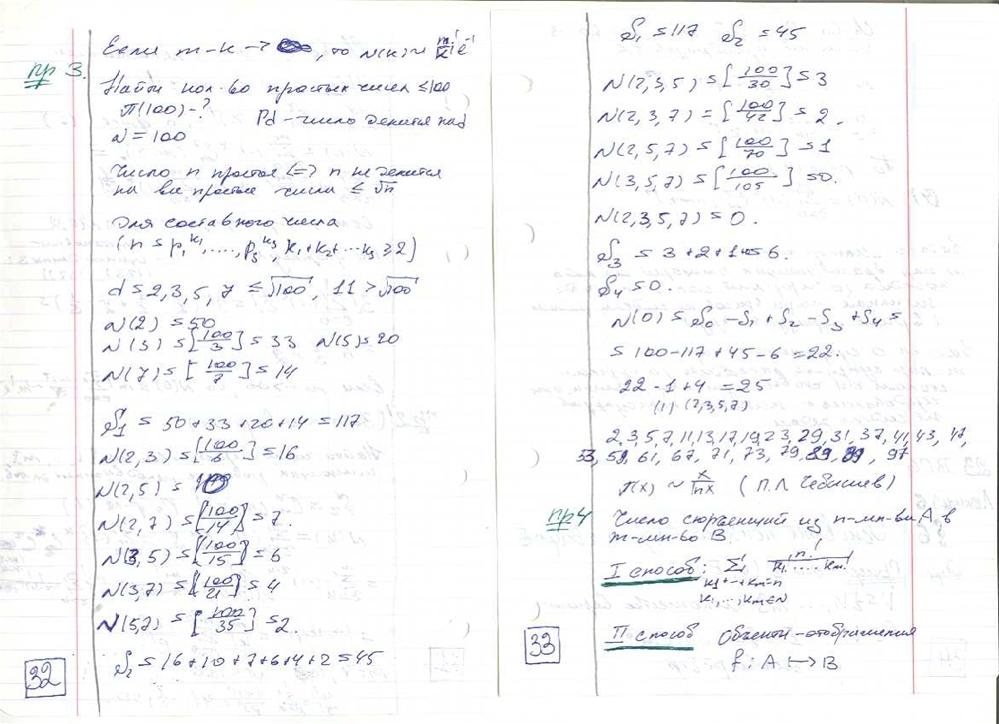 Если m-k → ∞, то N(k) ~ m^k/k! e^-1
пр 3.
Найти кол-во простых чисел ≤100
П(100)-? Pd - число делится на d
N = 100
Число n простое <=> n не делится
на все простые числа ≤ √n
Для составного числа
(n = p₁^k₁, ..., p_s^k_s, k₁+k₂+...k_s ≥ 2)
d = 2, 3, 5, 7 ≤ √100, 11 > √100
N(2) = 50
N(3) = [100/3] = 33 N(5) = 20
N(7) = [100/7] = 14
S₁ = 50+33+20+14 = 117
N(2,3) = [100/6] = 16
N(2,5) = 10
N(2,7) = [100/14] = 7.
N(3,5) = [100/15] = 6
N(3,7) = [100/21] = 4
N(5,7) = [100/35] = 2.
S₂ = 16+10+7+6+4+2 = 45
32
S₁ = 117 S₂ = 45
N(2,3,5) = [100/30] = 3
N(2,3,7) = [100/42] = 2.
N(2,5,7) = [100/70] = 1
N(3,5,7) = [100/105] = 0.
N(2,3,5,7) = 0.
S₃ = 3+2+1 = 6.
S₄ = 0.
N(0) = S₀ - S₁ + S₂ - S₃ + S₄ =
= 100-117+45-6 = 22.
22-1+4 = 25
(1) (2,3,5,7)
2,3,5,7,11,13,17,19,23,29,31,37,41,43,47,
53,59,61,67,71,73,79,83,89,97
П(x) ~ x/ln x (П.Л Чебышев)
пр4 Число сюръекций из n-мн-ва A в
m-мн-во B.
I способ: Σ n!/k₁!....km!
k₁+...+km=n
k₁,...,km∈N
II способ Объекты-отображения
f: A ↦ B
33